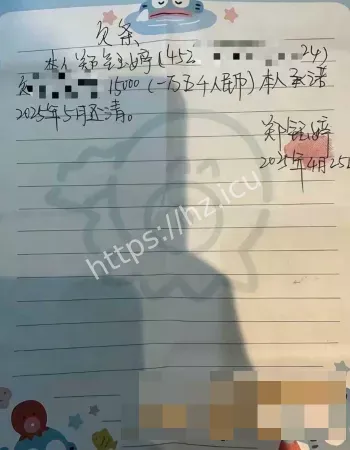 欠条
本人郑钰婷(452 24)
欠 15000(一万五千人民币)本人承诺
2025年5月还清。
郑钰婷
2025年4月25日
https://hz.icu